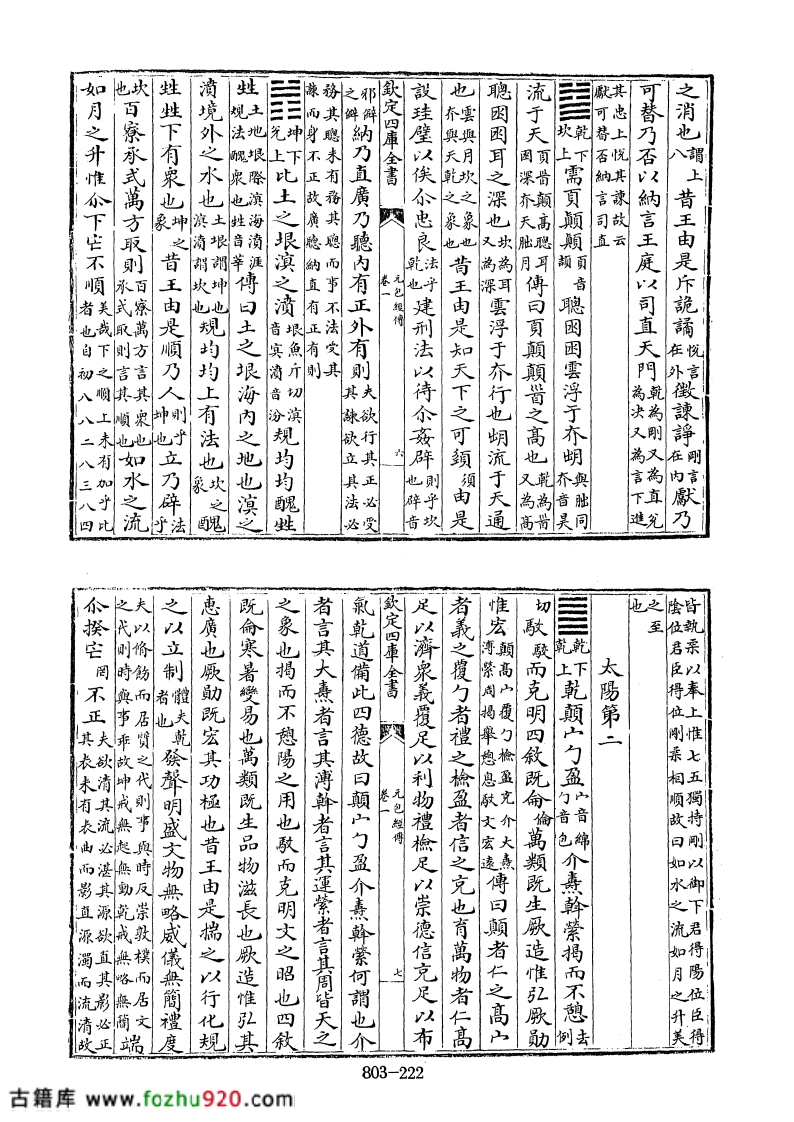 之消也謂上八昔王由是斥詭譎悅言在外徵諫諍剛言在内獻乃
可替乃否以納言王庭以司直天門乾為剛又為直兌為決又為言下進
其忠上悅其諫故云獻可替否納言司直
乾下坎上需頁顛顛頁音頡聰囦囦雲浮于夰朏與朏同夰音昊
流于天頁䭫顛高聰耳囦深夰天朏月傳曰頁顛顛䭫之高也乾為首又為高
聰囦囦耳之深也坎為耳又為深雲浮于夰行也朏流于天通
也雲與月坎之象也夰與天乾之象也昔王由是知天下之可須由是
設珪璧以俟尒忠良法乎乾也建刑法以待尒姦辟則乎坎也辟音
欽定四庫全書
元包經傳
卷一
六
邪僻之僻納乃直廣乃聽内有正外有則夫欲行其正必受其諫欲立其法必
務其聰未有務其聰而事不法受其諫而身不正故廣聽納直有正有則
坤下坎上比土之垠溟之濆垠魚斤切溟音㝠濆音汾規均均醜甡
甡土地垠際溟海濆涯規法醜衆也甡音莘傳曰土之垠海内之地也溟之
濆境外之水也土垠謂坤也溟濆謂坎也規均均上有法也坎之象醜
甡甡下有衆也坤之象昔王由是順乃人則乎坤也立乃辟法乎
坎也百寮承式萬方取則百寮萬方言其衆也承式取則言其順也如水之流
如月之升惟尒下㝉不順美哉下之順上未有加乎比者也自初八八二八三八四
皆執柔以奉上惟七五獨持剛以御下君得陽位臣得
陰位君臣得位剛柔相順故曰如水之流如月之升美
之至也
太陽第二
乾下乾上乾顛宀勹盈宀音綿勹音包介燾榦縈揭而不憩去例
切馭馭而克明四敘既倫萬類既生厥造惟弘厥勛
惟宏顛高宀覆勹檢盈充介大燾溥縈周揭舉憩息馭文宏遠傳曰顛者仁之高宀
者義之覆勹者禮之檢盈者信之充也育萬物者仁高
足以濟衆義覆足以利物禮檢足以崇德信充足以布
欽定四庫全書
元包經傳
卷一
七
氣乾道備此四德故曰顛宀勹盈介燾榦縈何謂也介
者言其大燾者言其溥榦者言其運縈者言其周皆天之
之象也揭而不憩陽之用也馭而克明文之昭也四敘
既倫寒暑變易也萬類既生品物滋長也厥造惟弘其
恵廣也厥勛既宏其功極也昔王由是揣之以行化規
之以立制體夫乾者也發聲明盛文物無略威儀無簡禮度
夫以脩飭而居質之代則事與時反崇敦樸而居文
之代則時與事乖故坤戒無起無動乾戒無略無簡端
尒揆㝉罔不正夫欲清其流必湛其源欲直其影必正其表未有表曲而影直源濁而流清故
803-222
古籍库 www.fozhu920.com